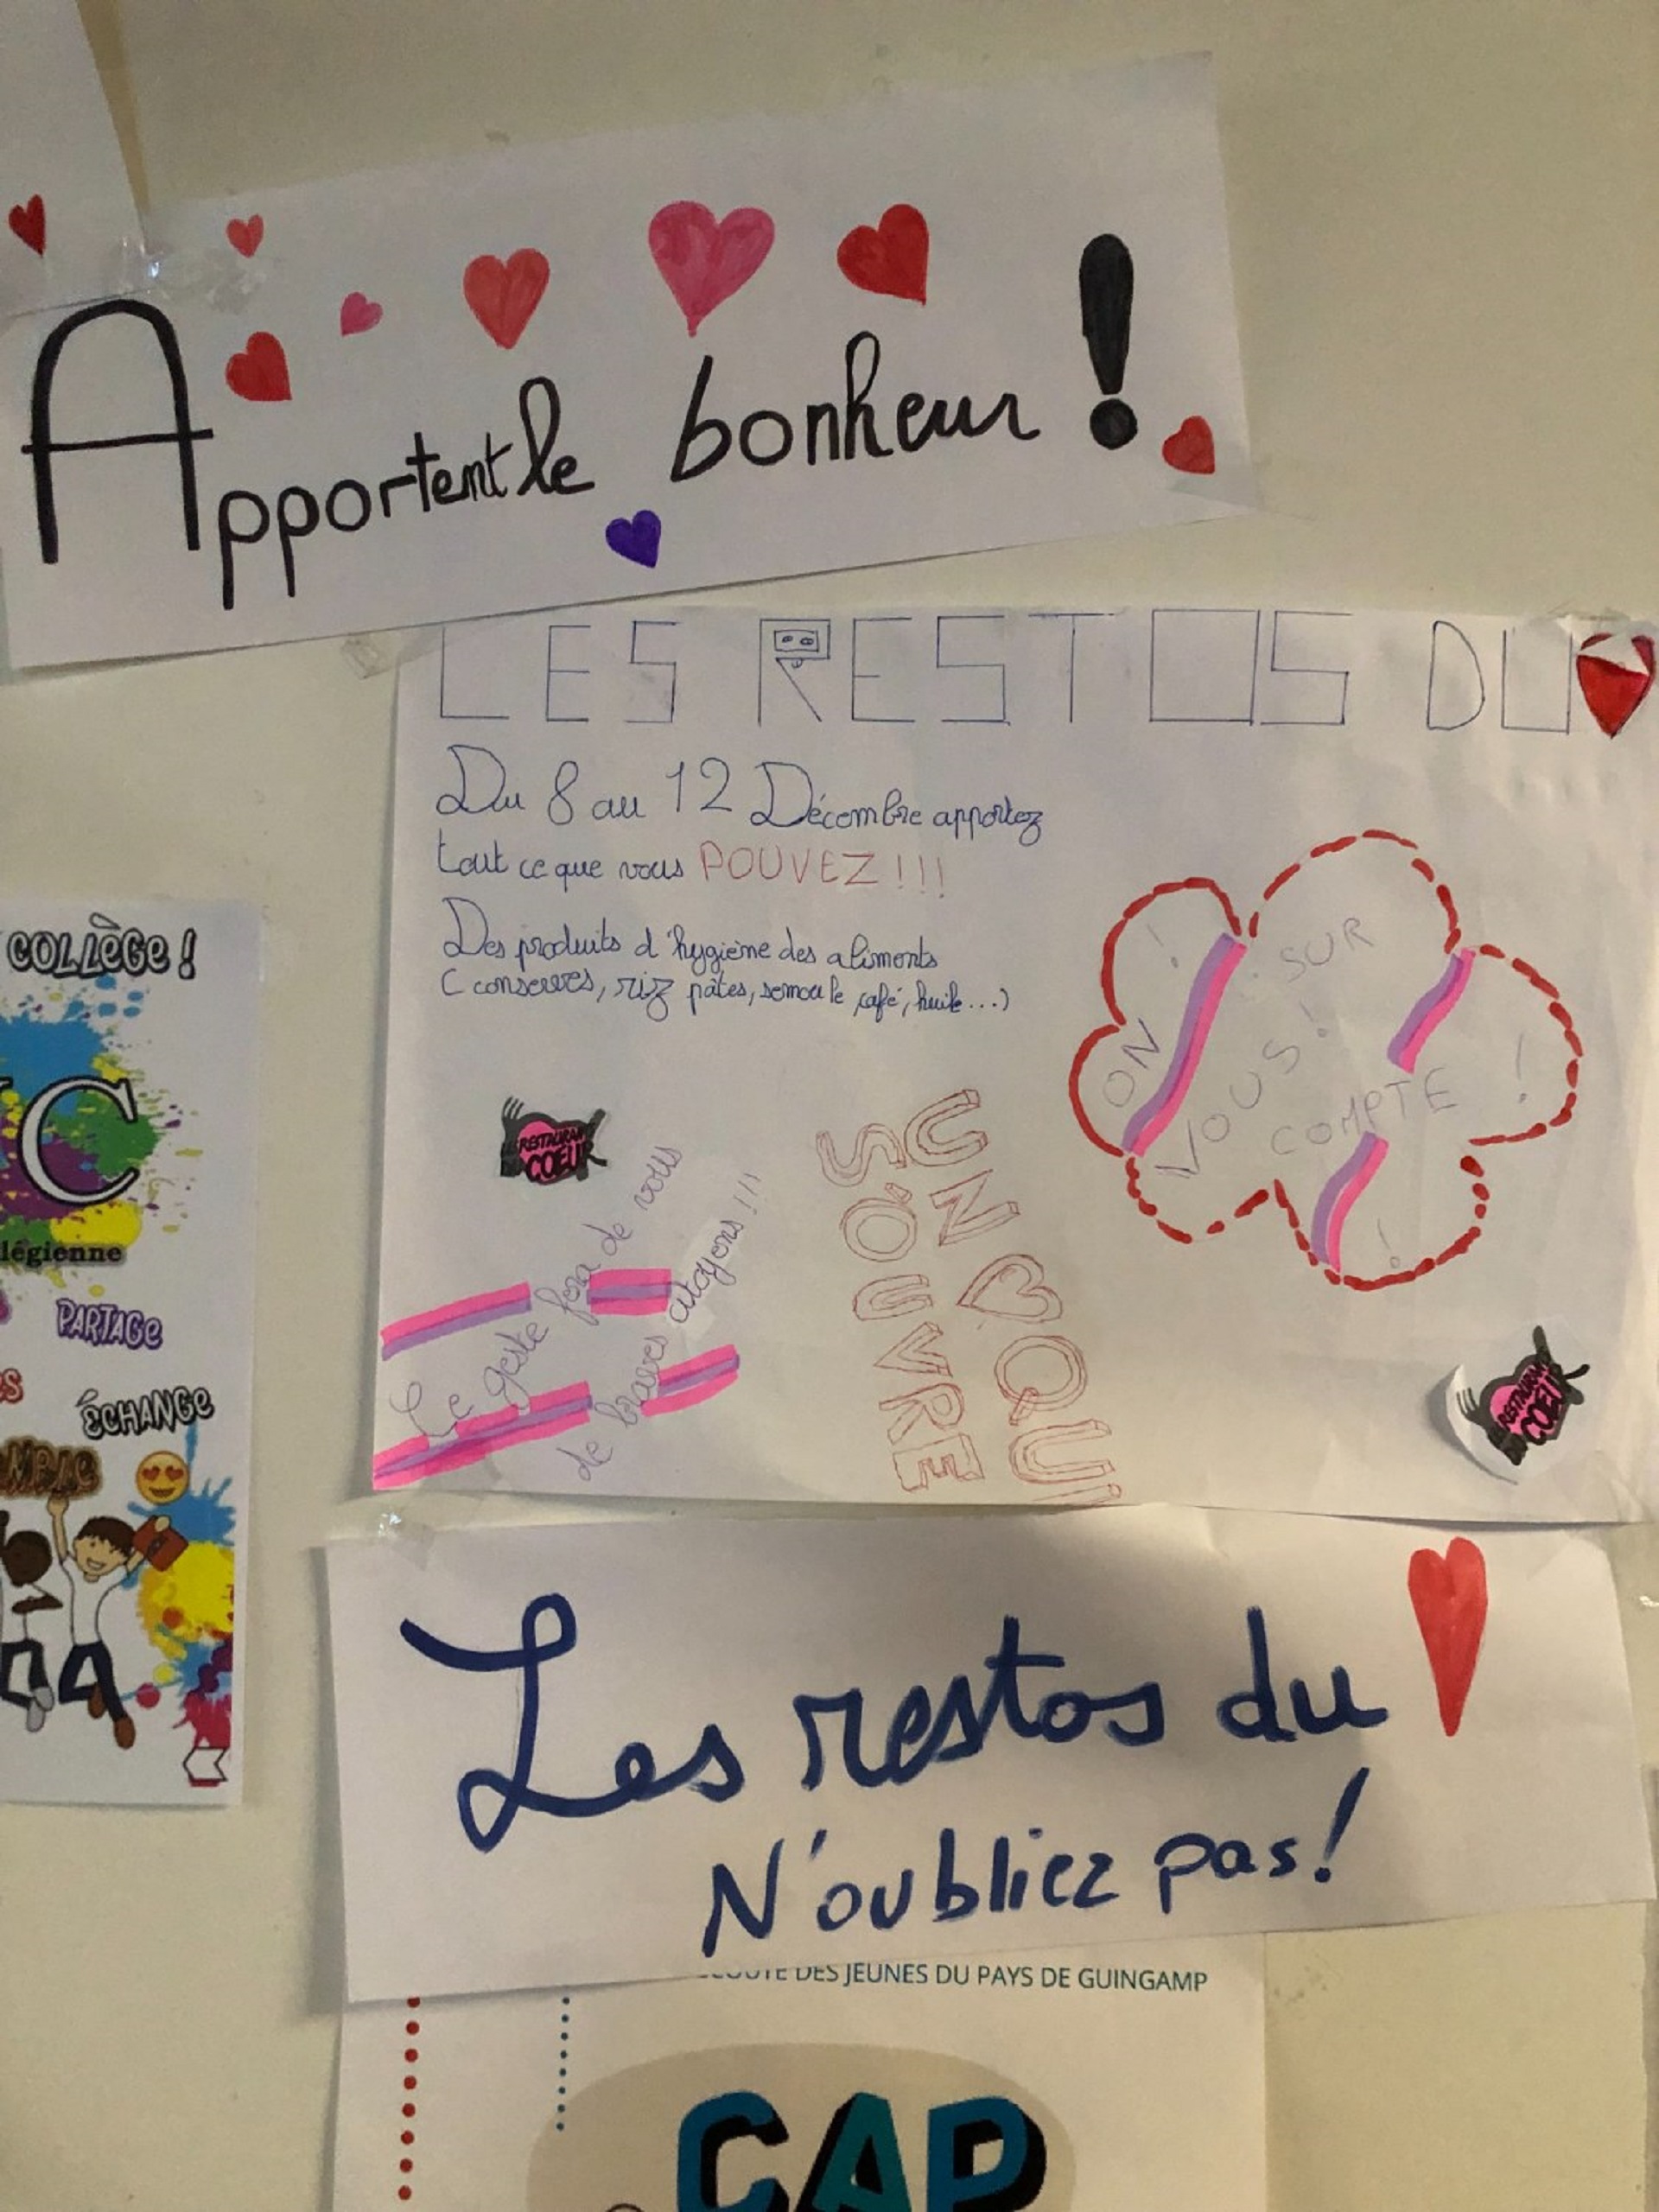 Apportent le bonheur !
LES RESTOS DU
Du 8 au 12 Décembre apportez
tout ce que vous POUVEZ !!!
Des produits d'hygiène des aliments
(conserves, riz pâtes, semoule, café, huile...)
! SUR
ON VOUS !
COMPTE !
!
RESTAURANT
COEUR
Le geste fera de vous
de braves citoyens !!!
UN QUI
S'OUVRE
RESTAURANT
COEUR
Les restos du
N'oubliez pas!
COLLÈGE !
C
légienne
PARTAGE
ÉCHANGE
DES JEUNES DU PAYS DE GUINGAMP
CAP